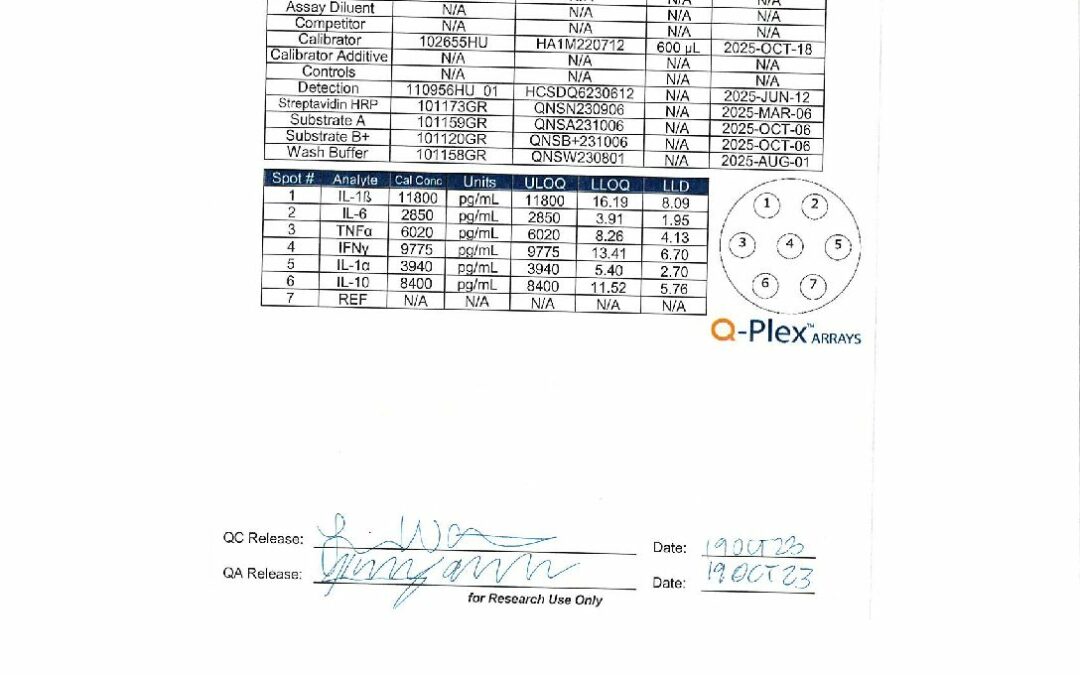 N/A N/A
Assay Diluent N/A N/A N/A N/A
Competitor N/A N/A N/A N/A
Calibrator 102655HU HA1M220712 600 µL 2025-OCT-18
Calibrator Additive N/A N/A N/A N/A
Controls N/A N/A N/A N/A
Detection 110956HU_01 HCSDQ6230612 N/A 2025-JUN-12
Streptavidin HRP 101173GR QNSN230906 N/A 2025-MAR-06
Substrate A 101159GR QNSA231006 N/A 2025-OCT-06
Substrate B+ 101120GR QNSB+231006 N/A 2025-OCT-06
Wash Buffer 101158GR QNSW230801 N/A 2025-AUG-01
Spot # Analyte Cal Conc Units ULOQ LLOQ LLD
1 IL-1ß 11800 pg/mL 11800 16.19 8.09
2 IL-6 2850 pg/mL 2850 3.91 1.95
3 TNFα 6020 pg/mL 6020 8.26 4.13
4 IFNγ 9775 pg/mL 9775 13.41 6.70
5 IL-1α 3940 pg/mL 3940 5.40 2.70
6 IL-10 8400 pg/mL 8400 11.52 5.76
7 REF N/A N/A N/A N/A N/A
1 2
3 4 5
6 7
Q-Plex™ ARRAYS
QC Release: Date: 19OCT23
QA Release: Date: 19OCT23
for Research Use Only